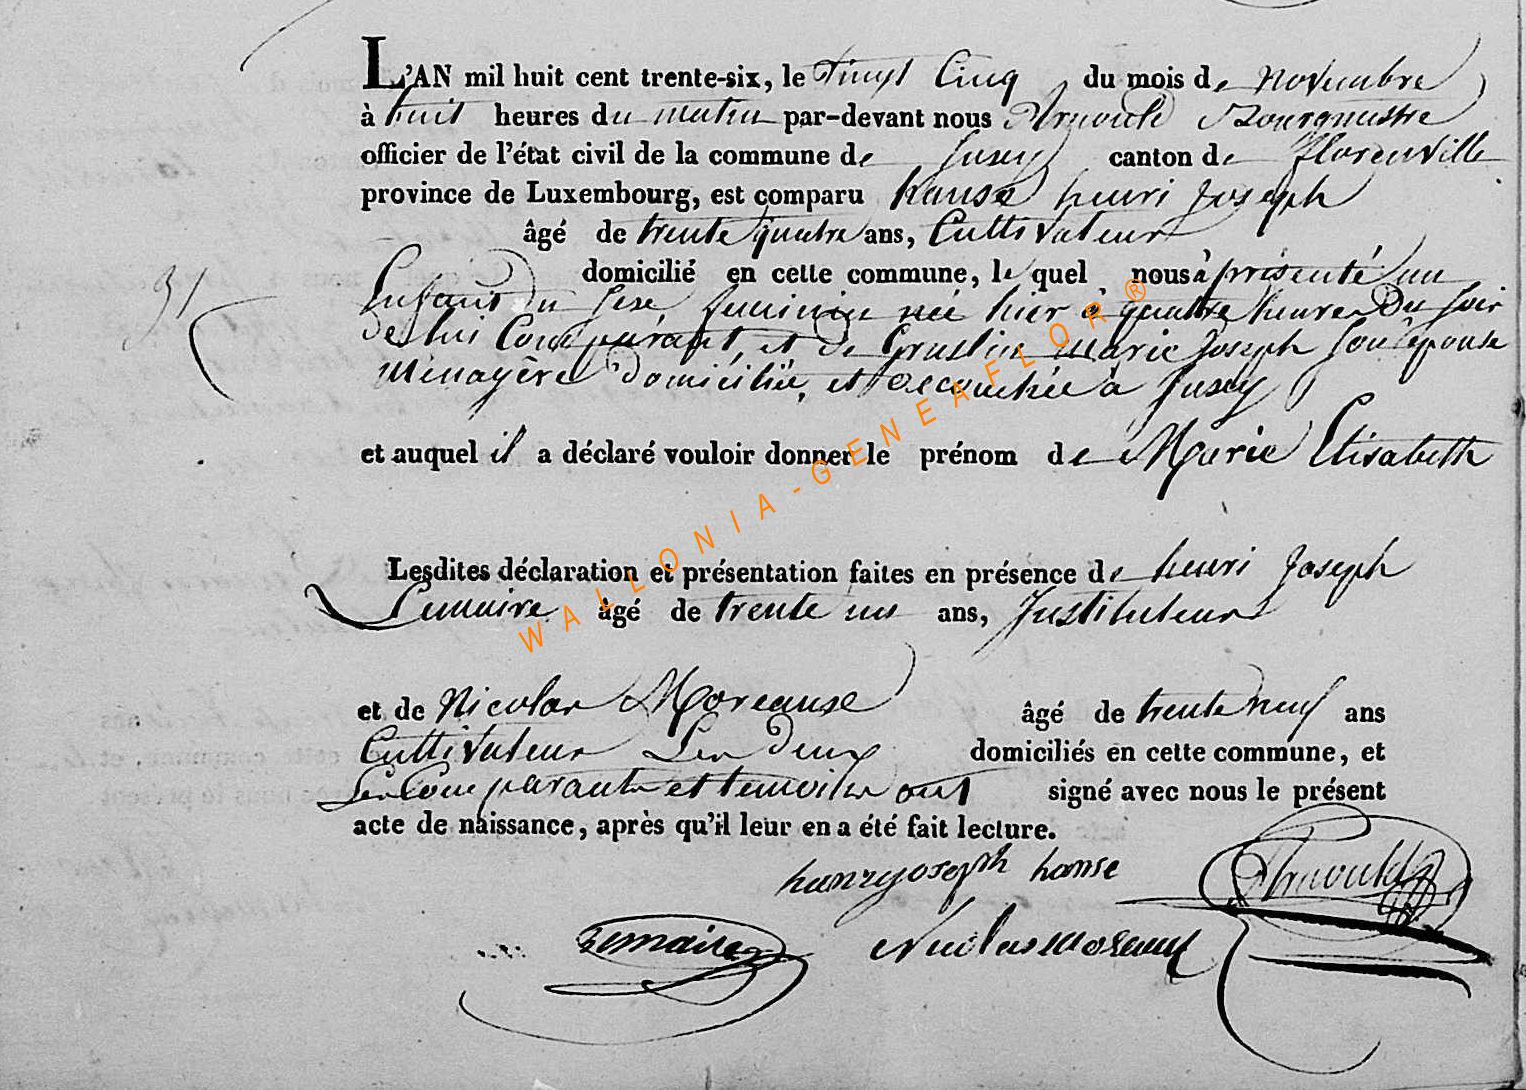 L'AN mil huit cent trente-six, le vingt Cinq du mois de novembre
à huit heures du matin par-devant nous Arnould Bourgmestre
officier de l'état civil de la commune de Jusey canton de florenville
province de Luxembourg, est comparu hanse henri Joseph
âgé de trente quatre ans, Cultivateur
domicilié en cette commune, le quel nous à présenté un
31
Enfant du sexe feminin née hier à quatre heures du soir
de lui Comparant, et de Groslin marie Joseph son épouse
Ménagère domiciliée, et accouchée à Jusey
et auquel il a déclaré vouloir donner le prénom de Marie Elisabeth
WALLONIA-GENEAFLOR®
Lesdites déclaration et présentation faites en présence de henri Joseph
Lemaire âgé de trente un ans, Instituteur
et de Nicolas Moreause âgé de trente neuf ans
Cultivateur Les deux domiciliés en cette commune, et
Les Comparants et temoins ont signé avec nous le présent
acte de naissance, après qu'il leur en a été fait lecture.
henry joseph hanse
Arnould
Lemaire Nicolas moreause